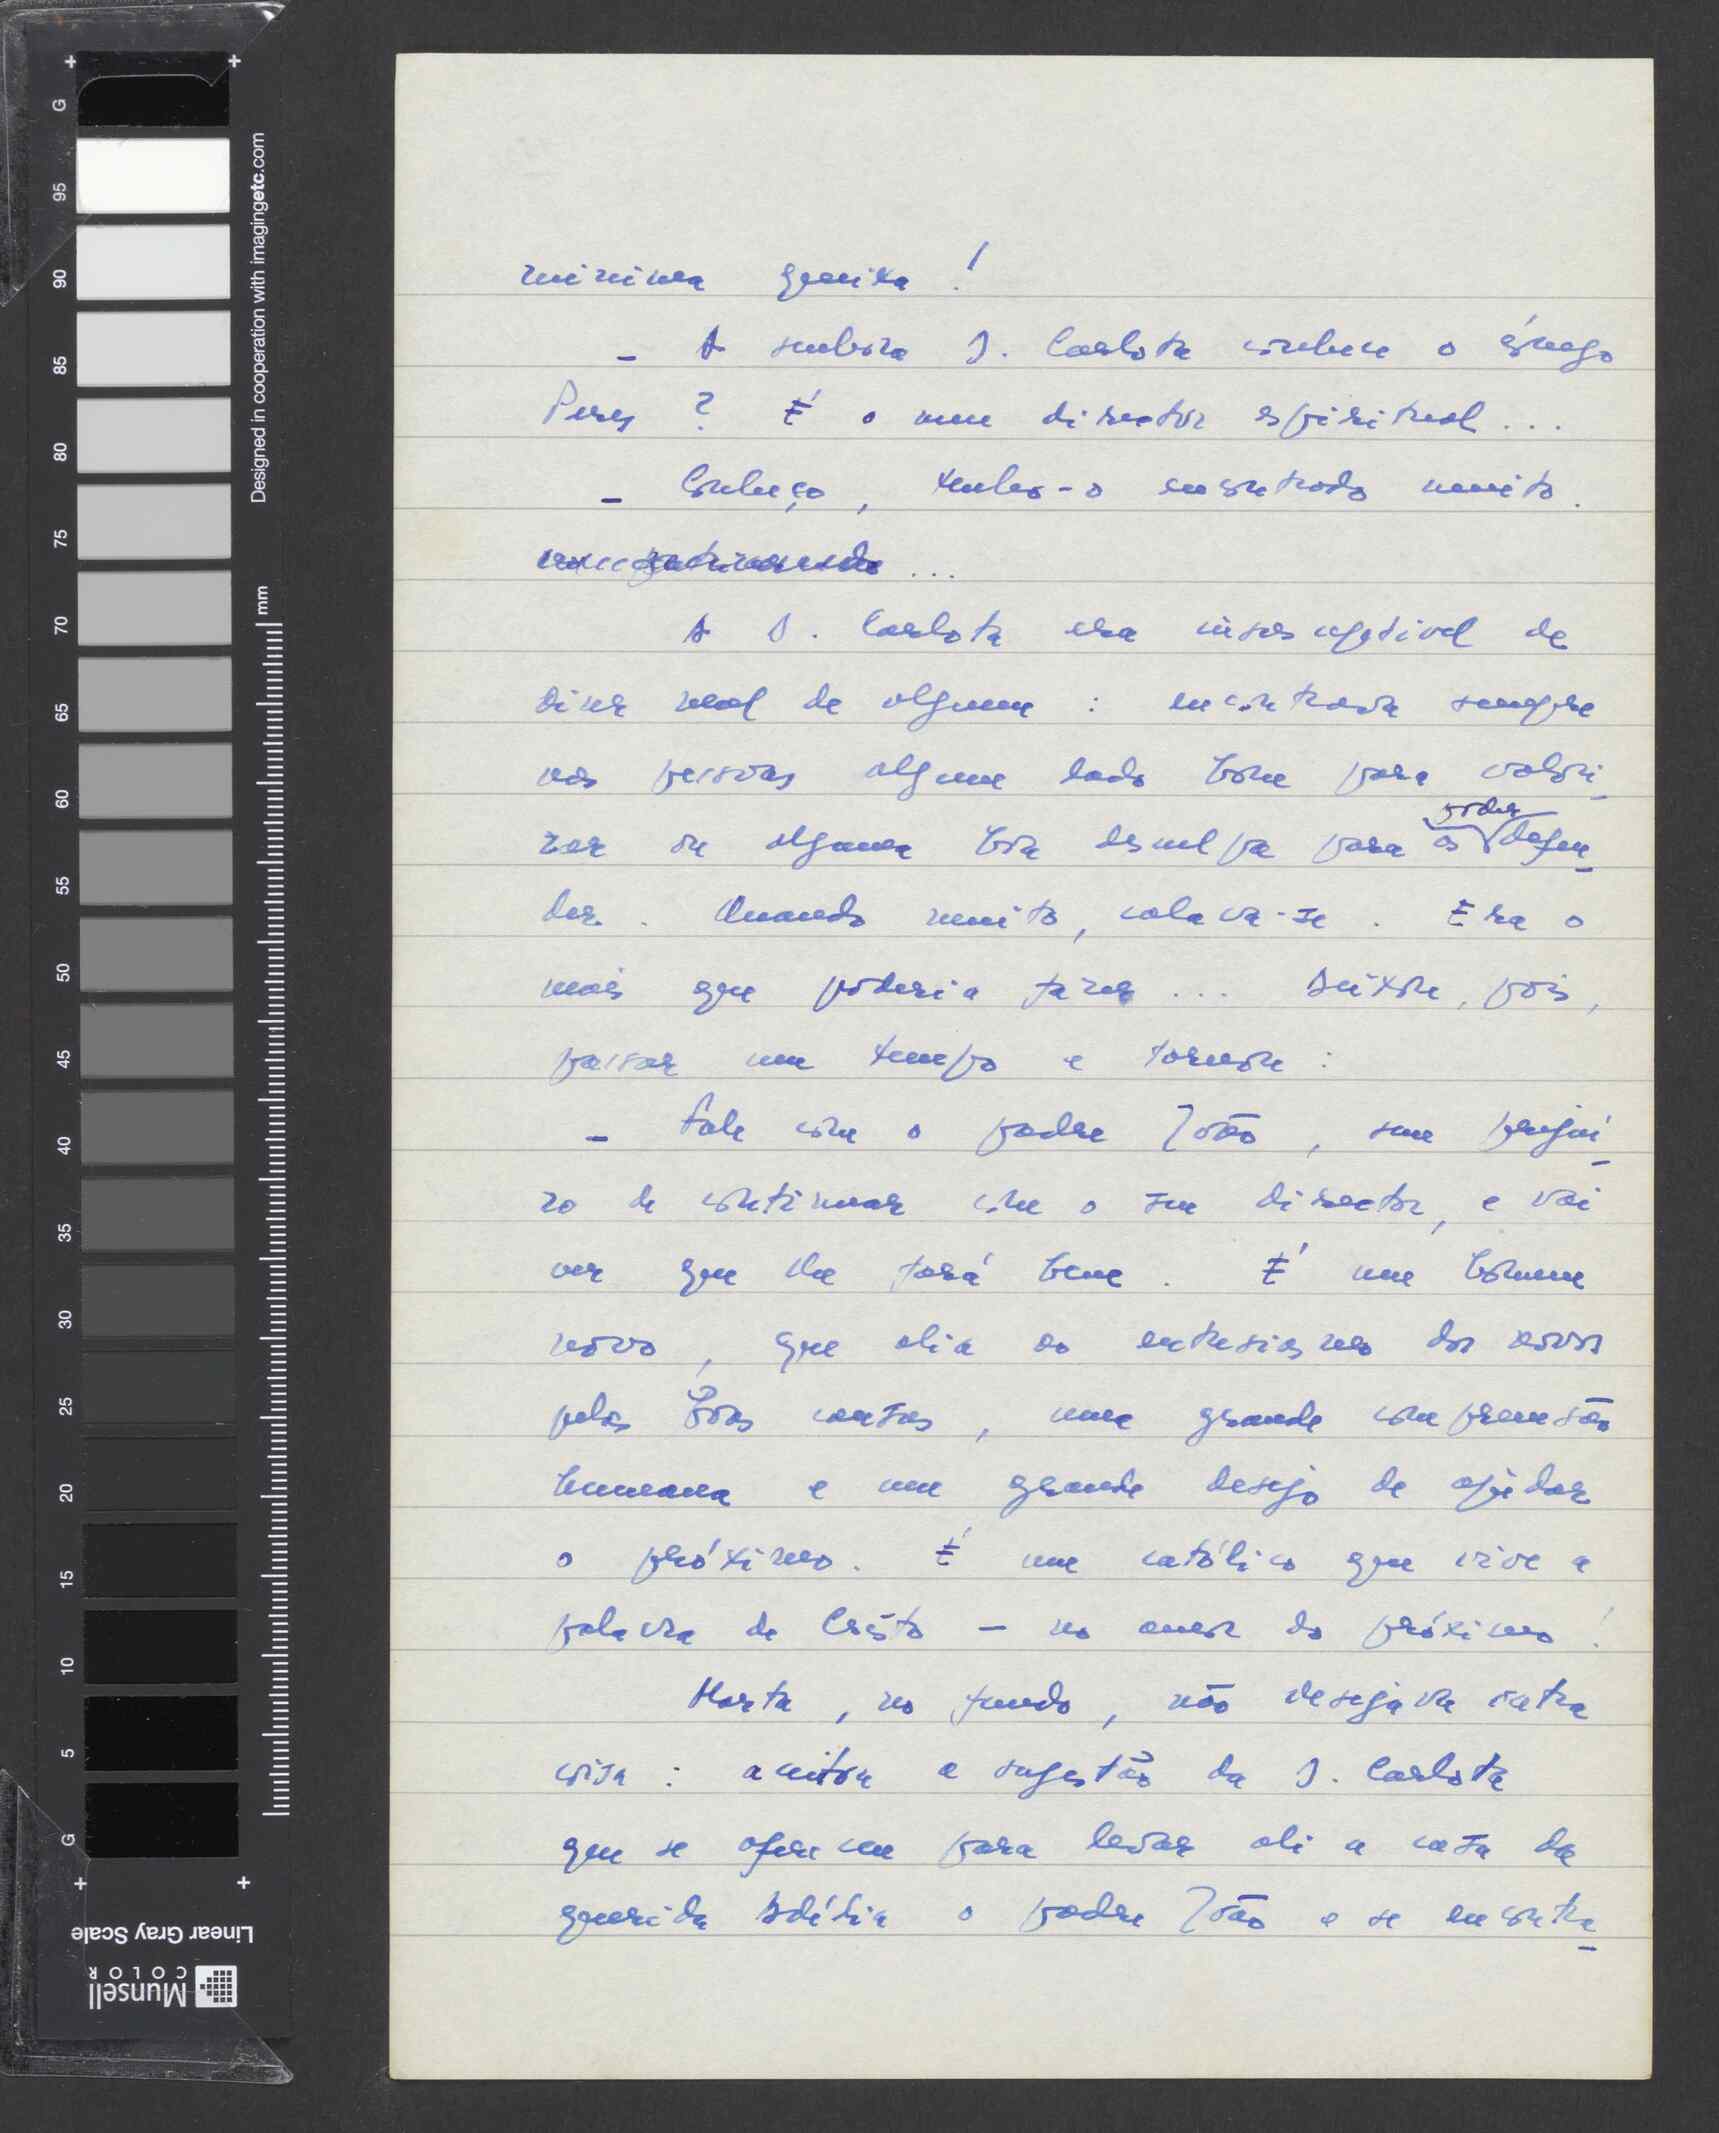 mínima queixa!
– A senhora D. Carlota conhece o cónego
Peres? É o meu director espiritual...
– Conheço, tenho-o encontrado muito.
...
A D. Carlota era insusceptível de
dizer mal de alguém: encontrava sempre
nas pessoas algum lado bom para valori-
zar ou alguma boa desculpa para os poder defen-
der. Quando muito, calava-se. Era o
mais que poderia fazer... Deixou, pois,
passar um tempo e tornou:
– Fale com o padre João, sem prejuí-
zo de continuar com o seu director, e vai
ver que lhe fará bem. É um homem
novo, que alia ao entusiasmo dos novos
pelas boas causas, uma grande compreensão
humana e um grande desejo de ajudar
o próximo. É um católico que vive a
palavra de Cristo – no amor do próximo!
Marta, no fundo, não desejava outra
coisa: aceitou a sugestão da D. Carlota
que se ofereceu para levar ali a casa da
querida Adélia o padre João e se encontra-
Designed in cooperation with imagingetc.com
mm
G
95
90
85
80
75
70
65
60
55
50
45
40
35
30
25
20
15
10
5
G
Linear Gray Scale
Munsell
COLOR